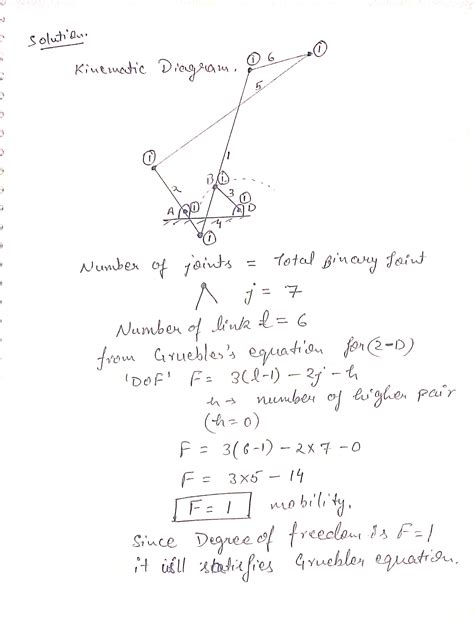 Solution.
Kinematic Diagram.
① 6 ①
5
①
1
2
B ①
3
A ① ① D
4
①
Number of joints = Total Binary Joint
j = 7
Number of link l = 6
from Gruebler's equation for (2-D)
'DOF' F = 3(l-1) - 2j - h
h → number of higher pair
(h=0)
F = 3(6-1) - 2×7 - 0
F = 3×5 - 14
F = 1 mobility.
Since Degree of freedom is F=1
it will satisfies Gruebler equation.